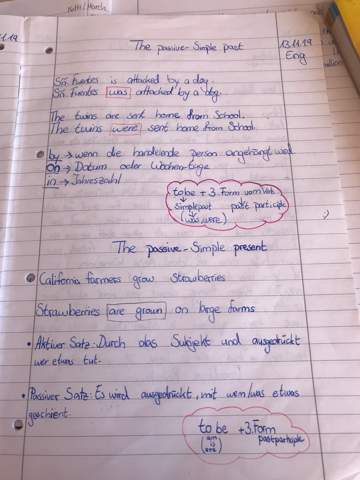 Mathe/March
11.19
13.11.19
Eng
The passive-Simple past
Sir Fuentes is attacked by a dog.
Sir Fuentes was attacked by a dog.
The twins are sent home from School.
The twins were sent home from School.
by → wenn die handelnde Person angehängt wird
on → Datum oder Wochentage
in → Jahreszahl
to be + 3. Form vom Verb
simple past past participle
(was, were)
The passive-Simple present
California farmers grow strawberries
Strawberries are grown on large farms
• Aktiver Satz: Durch das Subjekt und ausgedrückt
wer etwas tut.
• Passiver Satz: Es wird ausgedrückt, mit wem/was etwas
geschieht
to be +3. Form
(am past participle
is
are)